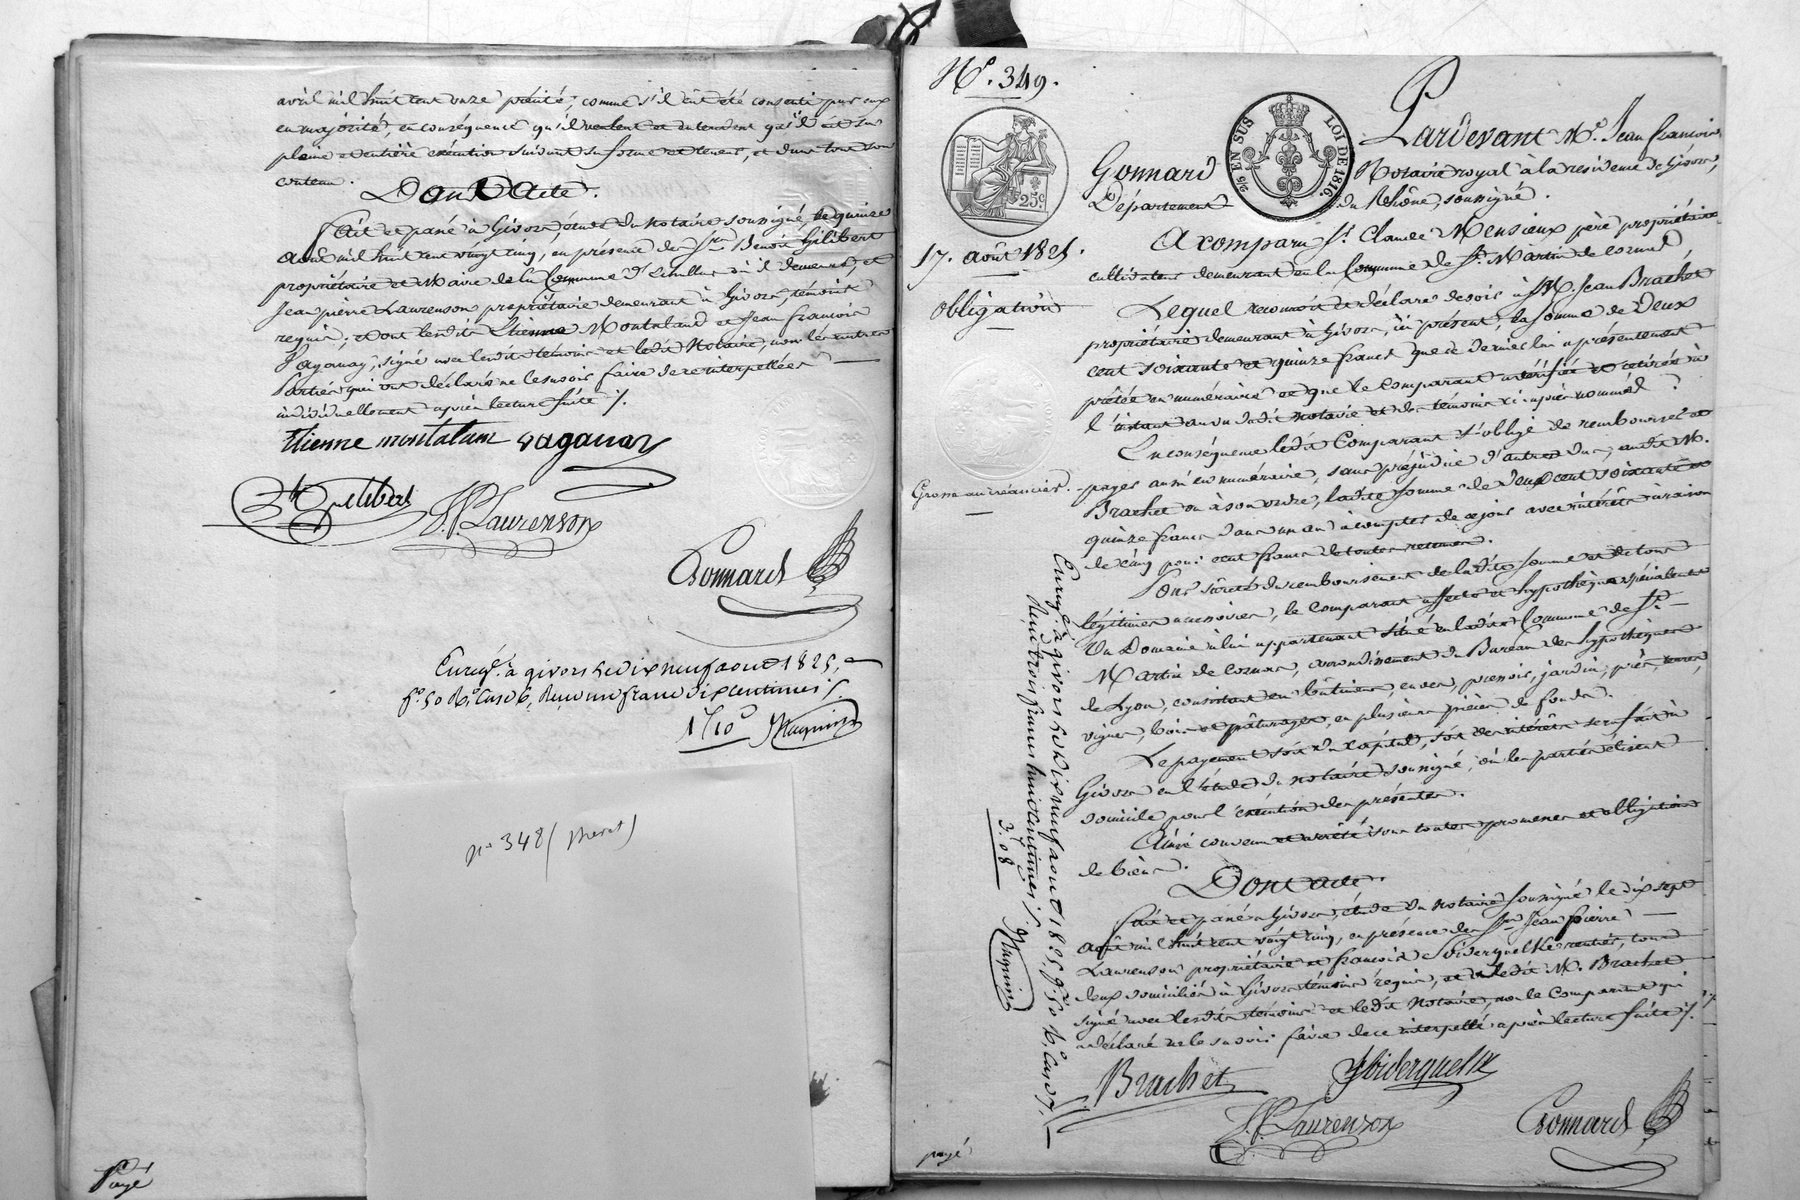 avril mil huit cent onze précité, comme s'il eut été consenti par eux
en majorité, en conséquence qu'ils veulent et entendent qu'il ait sa
pleine et entière exécution suivant sa forme et teneur, et dans tout son
contenu.
Dont Acte.
Fait et passé à Givors, étude du notaire soussigné, le quinze
août mil huit cent vingt cinq, en présence des Srs. Benoit Gilibert
propriétaire et Maire de la Commune d' où il demeure, et
Jean pierre Laurenson propriétaire demeurant à Givors, témoins
requis; et ont lesdits Etienne Montaland et Jean François
signé avec lesdits témoins et ledit Notaire, non les autres
Parties qui ont déclaré ne le savoir faire de ce interpellées
individuellement après lecture faite ./.
Etienne montaland
Gilibert J.P. Laurenson
Gonnard
Enregé. à givors le dix neuf aout 1825,
fo. 50 Ro. Case 6, Reçu un franc dix centimes ./.
1f 10c
no 348 (
Payé
No. 349.
25c.
5/6 EN SUS LOI DE 1816.
Pardevant Me. Jean françois
Gonnard Notaire royal à la residence de Givors,
Département du Rhône, soussigné.
17. août 1825.
A comparu Sr. Claude Mensieux père propriétaire
cultivateur demeurant en la Commune de St. Martin de cornas,
obligation
Lequel reconnait et déclare devoir à M. Jean Brachet
propriétaire demeurant à Givors, ici présent, la somme de Deux
cent soixante et quinze francs que ce dernier lui a présentement
prêtée en numéraire et que le comparant a vérifiée et retirée à
l'instant au vu dudit notaire et des témoins ci-après nommés
En conséquence ledit Comparant s'oblige de rembourser et
Grosse au créancier.
payer aussi en numéraire, sans préjudice d'autres dus, audit M.
Brachet ou à son ordre, ladite somme de Deux cent soixante et
quinze francs dans un an à compter de ce jour avec intérêts à raison
de cinq pour cent francs de toutes retenues.
Pour sûreté du remboursement de ladite somme et de tous
légitimes accessoires, le comparant affecte et hypothèque spécialement
Un Domaine à lui appartenant situé en ladite Commune de St.
Martin de cornas, arrondissement du Bureau des hypothèques
de Lyon, consistant en bâtimens, cuves, pressoir, jardin, prés, terres,
vignes, bois et pâturages, en plusieurs pièces de fonds.
Le payement soit du capital, soit des intérêts sera fait à
Givors en l'étude du notaire soussigné, où les parties élisent
domicile pour l'exécution des présentes.
Ainsi convenu et arrêté sous toutes promesses et obligation
de biens.
Dont acte.
Fait et passé à Givors, étude du notaire soussigné le dix sept
août mil huit cent vingt cinq, en présence des Srs. Jean Pierre
Laurenson propriétaire et françois rentier, tous
deux domiciliés à Givors témoins requis, et a ledit M. Brachet
signé avec lesdits témoins et ledit Notaire, non le Comparant qui
a déclaré ne le savoir faire de ce interpellé après lecture faite ./.
Enregé. à givors le dix neuf aout 1825, fo. 50 Ro. Case 7.
Reçu trois francs huit centimes ./.
3f. 08
Brachet
J.P. Laurenson
Gonnard
payé